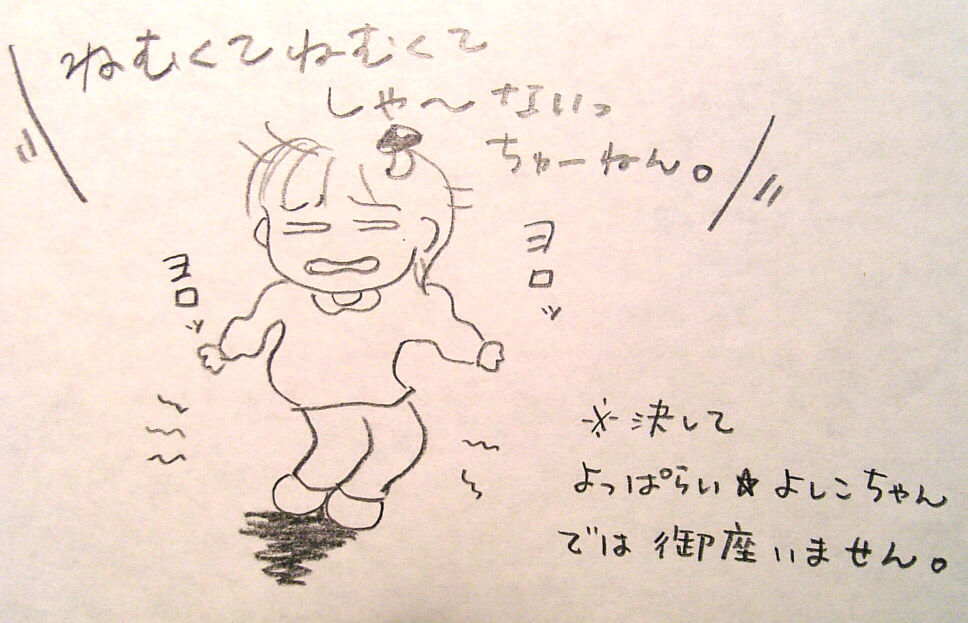 ねむくてねむくて
しゃ〜ないっ
ちゅーねん。
ヨロッ
ヨロッ
※決して
よっぱらい☆よしこちゃん
では御座いません。